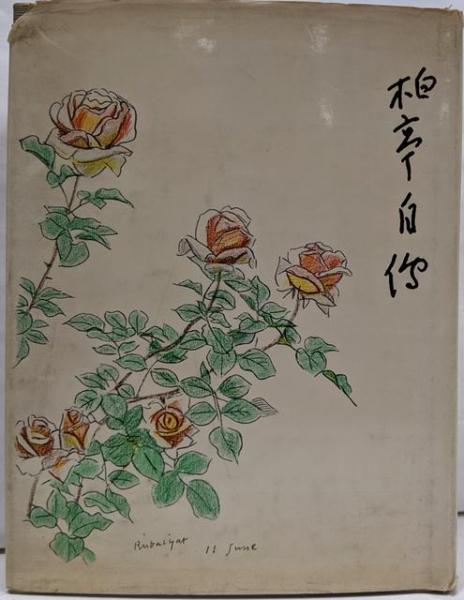 柏亭自伝
Rubaiyat 11 June